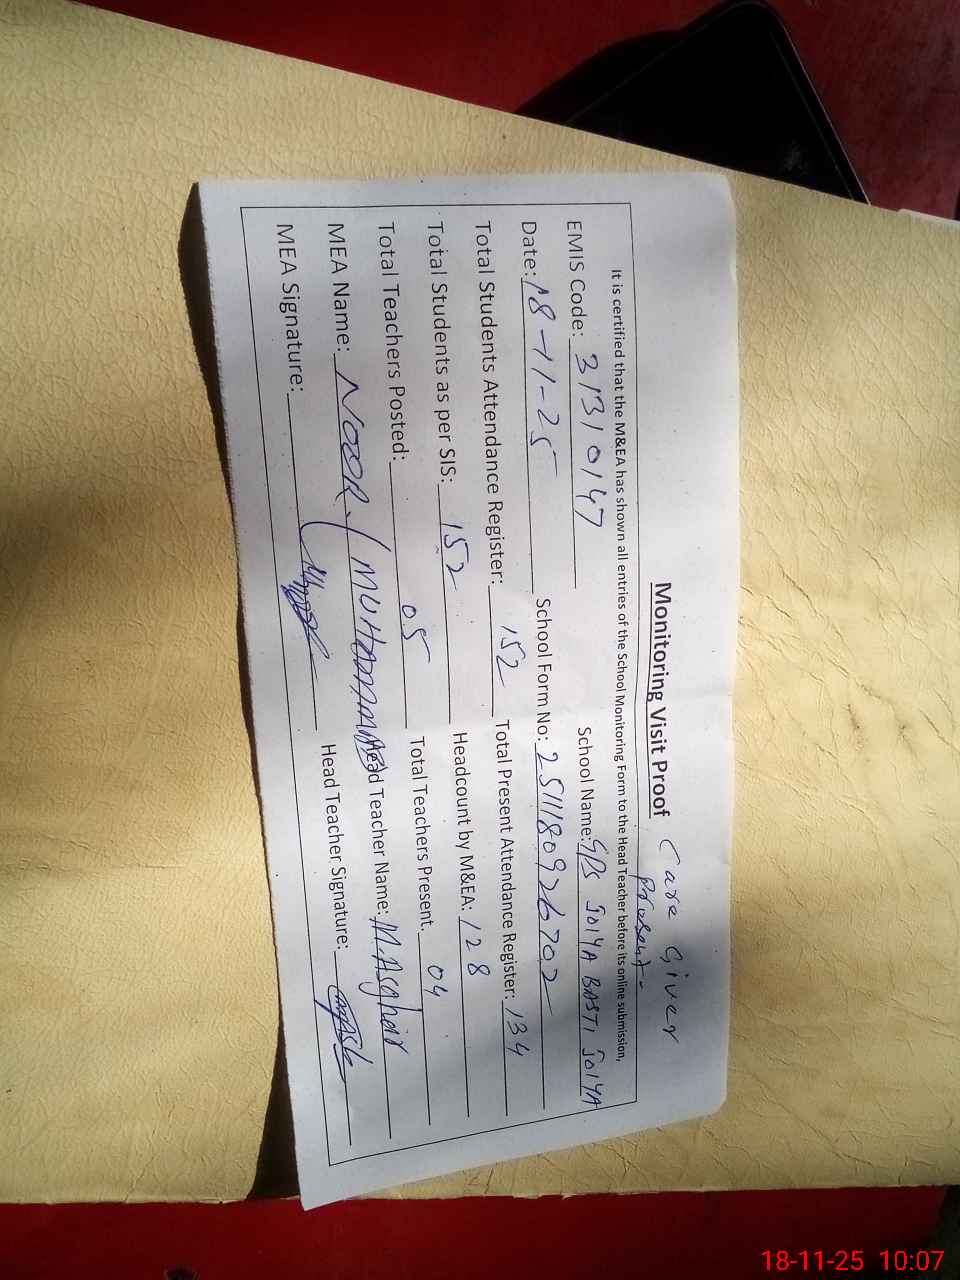 Monitoring Visit Proof Care Giver
present-
It is certified that the M&EA has shown all entries of the School Monitoring Form to the Head Teacher before its online submission,
EMIS Code: 31310147 School Name: GPS JOIYA BASTI JOIYA
Date: 18-11-25 School Form No: 2511180926702
Total Students Attendance Register: 152 Total Present Attendance Register: 134
Total Students as per SIS: 152 Headcount by M&EA: 128
Total Teachers Posted: 05 Total Teachers Present. 04
MEA Name: NOOR MUHAMMAD Head Teacher Name: M.Asghar
MEA Signature: Head Teacher Signature:
18-11-25 10:07